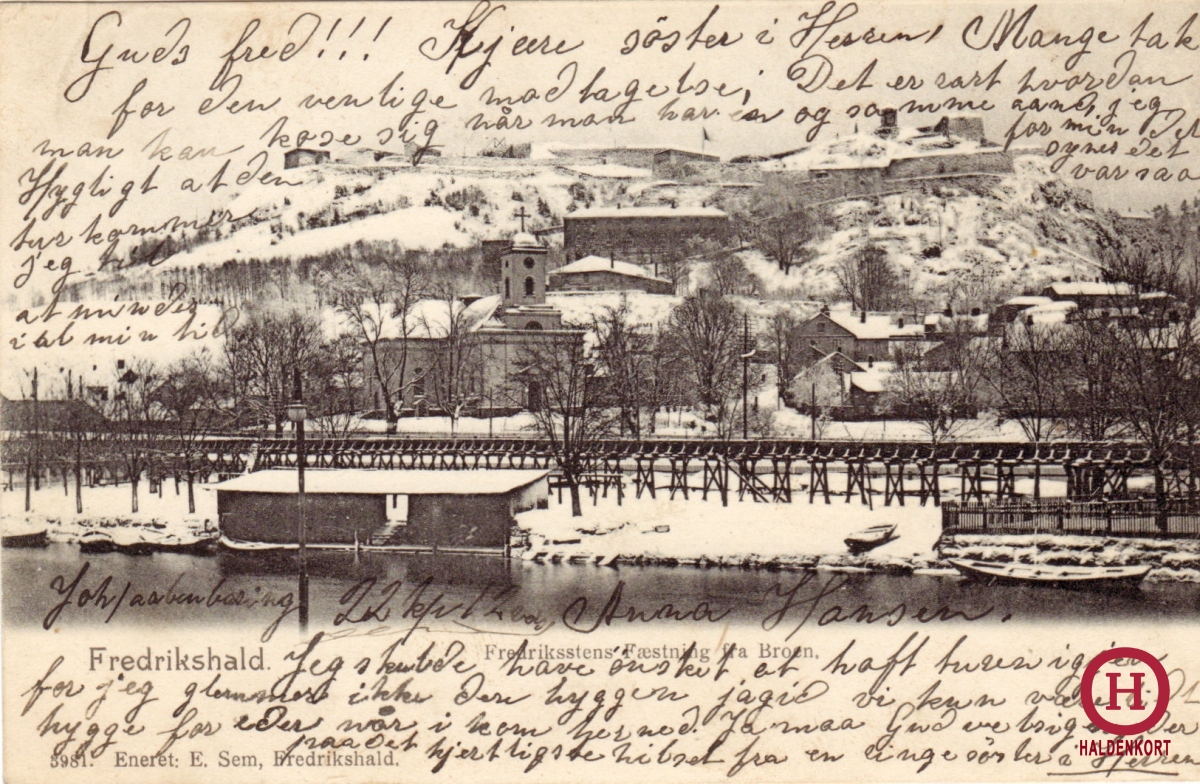 Guds fred!!! Kjære söster i Herren, Mange tak
for den venlige modtagelse, Det er rart hvordan
man kan kose sig når man har en og samme aand, jeg
for min del
synes det
var saa
Hygligt at den
tur kommer
jeg til
at mindes
i al min tid
Joh/ 22 Anna Hansen.
Fredrikshald.
Fredriksstens Fæstning fra Broen.
Jeg skulde have önsket at haft turen igjen
for jeg glemmer ikke den hyggen vi kun
hygge for eder når i kom herned. Ja maa Gud velsigne eder
paa det hjertligste hilset fra en ringe söster i Herren
3981. Eneret: E. Sem, Fredrikshald.
H
HALDENKORT